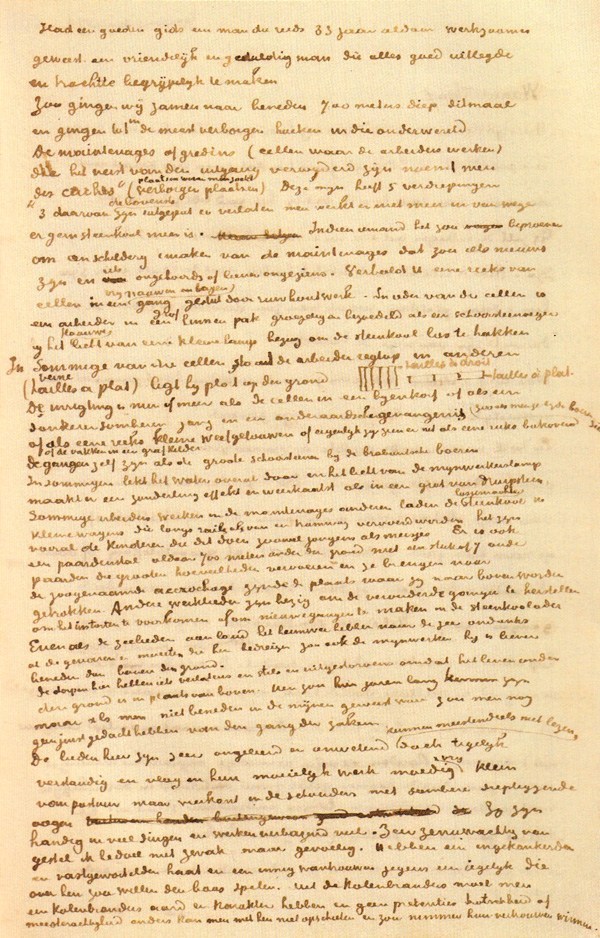 Had een goeden gids een man die reeds 33 jaar aldaar werkzaam
geweest een vriendelijk en geduldig man die alles goed uitlegde
en trachtte begrijpelijk te maken
Zoo gingen wij samen naar beneden 700 meters diep ditmaal
en gingen tot in de meest verborgen hoeken in die onderwereld
De maintenages of gredins (cellen waar de arbeiders werken)
die het verst van den uitgang verwijderd zijn noemt men
plaatsen waar men zoekt
des caches (verborgen plaatsen) Deze mijn heeft 5 verdiepingen
de bovenste
3 daarvan zijn uitgeput en verlaten men werkt er niet meer in van wege
er geen steenkool meer is. Indien iemand het zou beproeven
om een schilderij te maken van de maintenages dat zou iets nieuws
zijn en iets ongehoords of liever ongeziens. Verbeeldt U eene reeks van
vrij naauwen en lagen
cellen in een gang gestut door ruw houtwerk. In ieder van die cellen is
een arbeider in een grof linnen pak groezelig en bezoedeld als een schoorsteenveger
flaauwe
bij het licht van eene kleine lamp bezig om de steenkool los te hakken
In sommige van die cellen staat de arbeider regtop in anderen
veine
tailles à droit
(tailles à plat) ligt hij plat op den grond
tailles à plat.
De inrigting is min of meer als de cellen in een byenkorf of als een
donkeren somberen gang in een onderaardsche gevangenis
of als eene reeks kleine weefgetouwen of eigenlijk zij zien er uit als eene reeks bakovens
of de vakken in een grafkelder
De gangen zelf zijn als de groote schoorsteenen bij de Brabantsche boeren
In sommigen lekt het water overal door en het licht van de mijnwerkerslamp
maakt er een zonderling effekt en weerkaatst als in een grot van druipsteen
Sommige arbeiders werken in de maintenages anderen laden de losgemaakte steenkool in
kleine wagens die langs rails als van een tramway vervoerd worden het zijn
vooral de kinderen die dit doen zoowel jongens als meisjes Er is ook
een paardenstal aldaar 700 meter onder den grond met een stuk of 7 oude
paarden die grooten hoeveelheden vervoeren en ze brengen naar
de zoogenaamde accrochage zijnde de plaats waar zij naar boven worden
getrokken. Andere werklieden zijn bezig om de verouderde gangen te herstellen
om het instorten te voorkomen of om nieuwe gangen te maken in de steenkoolader
Evenals de zeelieden aan land het heimwee hebben naar de zee ondanks
al de gevaren en moeiten die hen bedreigen zoo ook de mijnwerker hij is liever
beneden dan boven den grond.
De dorpen hier hebben iets verlatens en stils en uitgestorvens omdat het leven onder
den grond is in plaats van boven. Men zou hier jaren lang kunnen zijn
maar als men niet beneden in de mijnen geweest was zou men nog
geen juist gedacht hebben van den gang der zaken.
kunnen meestendeels niet lezen,
De lieden hier zijn zeer ongeleerd en onwetend doch tegelijk
verstandig en vlug in hun moeielijk werk moedig vrij klein
van postuur maar vierkant in de schouders met sombere diepliggende
oogen Zij zijn
handig in veel dingen en werken verbazend veel. Zeer zenuwachtig van
gestel ik bedoel niet zwak maar gevoelig. Hebben een ingekankerden
en vastgewortelden haat en een innig wantrouwen jegens een iegelijk die
over hen zou willen den baas spelen. Met de kolenbranders moet men
een kolenbranders aard en karakter hebben en geen pretenties hoogheid of
meesterachtigheid anders kan men met hen niet opschieten en zou nimmer hun vertrouwen winnen.